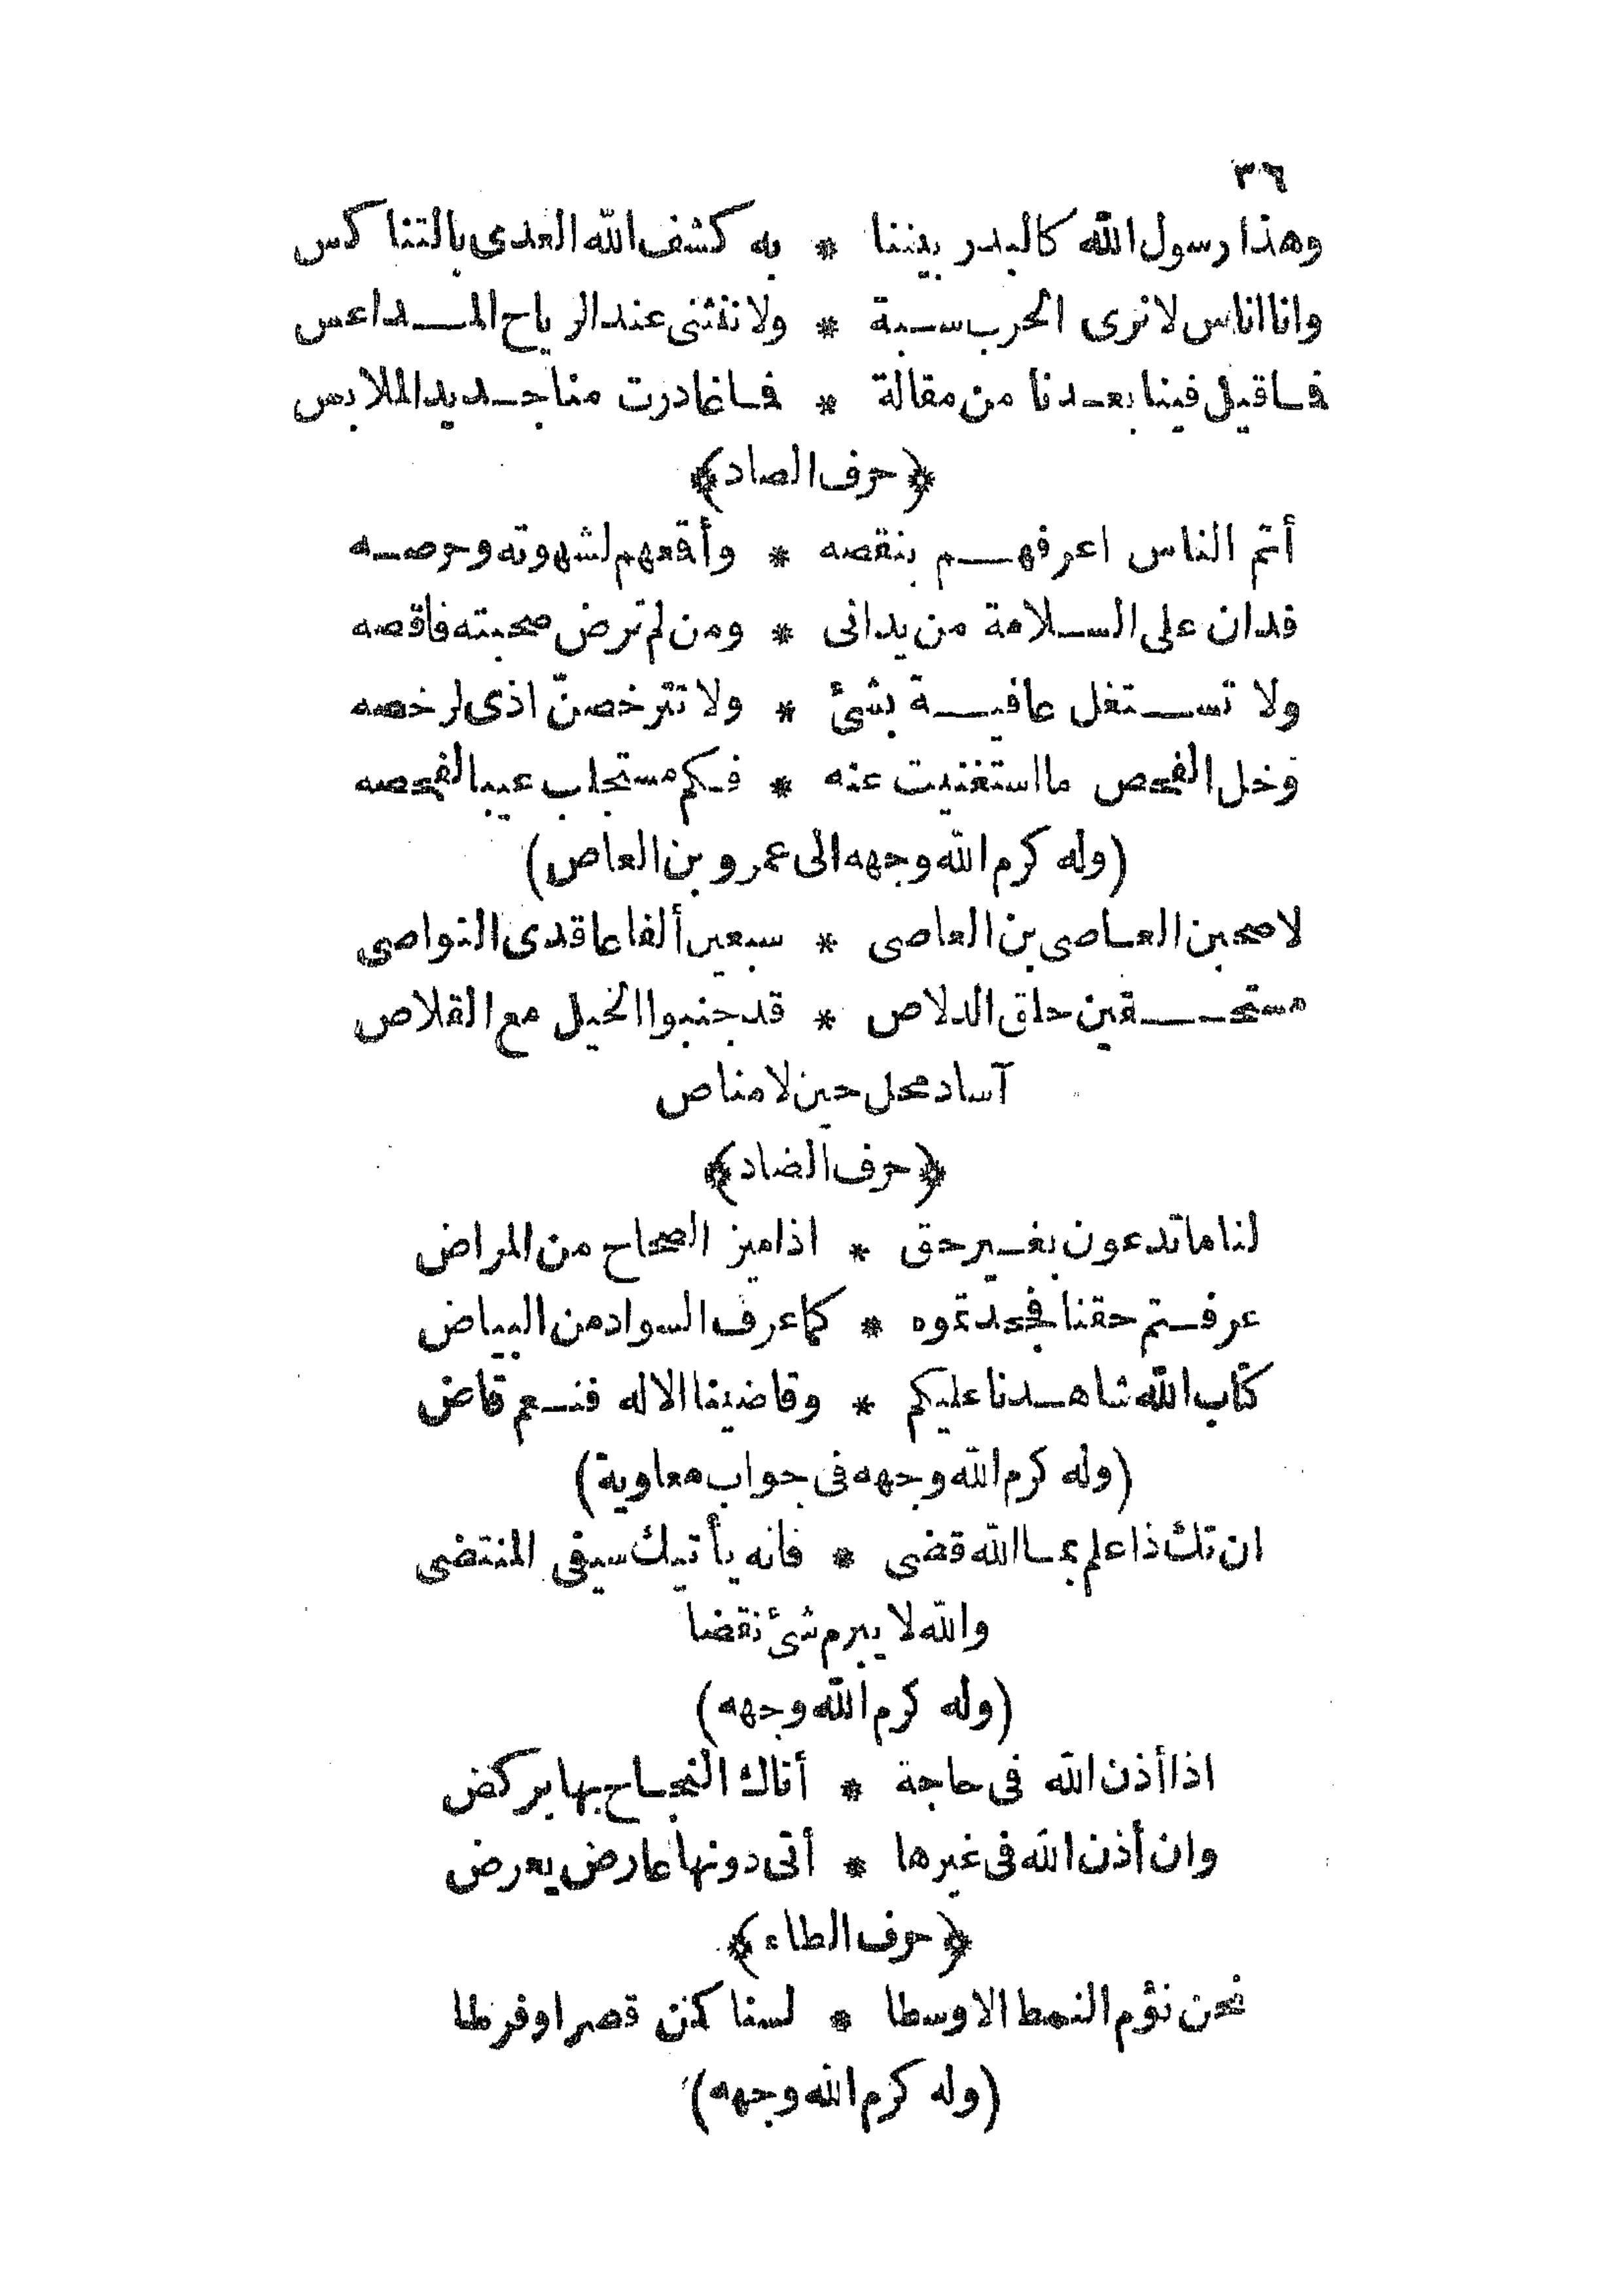 ٣٦
وهذا رسول الله كالبدر بيننا * به كشف الله العدى بالتناكس
وانا اناس لانرى الحرب سبة * ولا ننثنى عند الرياح المداعس
فاقيل فينا بعدنا من مقالة * فاغادرت منا جديد الملابس
﴿حرف الصاد﴾
أتم الناس اعرفهم بنقصه * وأقعهم لشهوته وحرصه
فدان على السلامة من يدانى * ومن لم ترض صحبته فاقصه
ولا تستغل عافية بشئ * ولا تترخصنّ اذى لرخصه
وخل الفحص ما استغنيت عنه * فكم مستجلب عيبا لفحصه
(وله كرم الله وجهه الى عمرو بن العاص)
لاصحبن العاصى بن العاصى * سبعين ألفا عاقدى النواصى
مستحقبين حلق الدلاص * قد جنبوا الخيل مع القلاص
آساد محل حين لا مناص
﴿حرف الضاد﴾
لنا ما تدعون بغير حق * اذا ميز الصحاح من المراض
عرفتم حقنا فجحدتموه * كما عرف السواد من البياض
كتاب الله شاهدنا عليكم * وقاضينا الاله فنعم قاض
(وله كرم الله وجهه فى جواب معاوية)
ان تك ذا علم بما الله قضى * فانه يأتيك سيفى المنتضى
والله لا يبرم شئ نقضا
(وله كرم الله وجهه)
اذا أذن الله فى حاجة * أتاك النجاح بها يركض
وان أذن الله فى غيرها * أتى دونها عارض يعرض
﴿حرف الطاء﴾
نحن نؤم النمط الاوسطا * لسنا كمن قصر اوفرطا
(وله كرم الله وجهه)